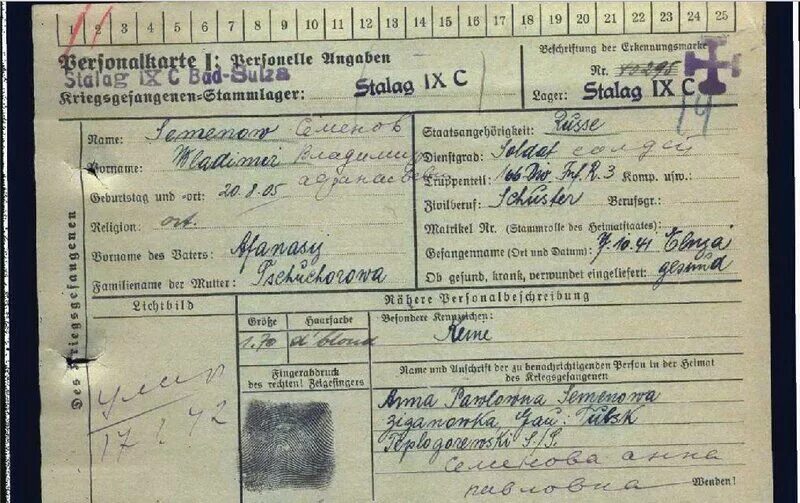 1 2 3 4 5 6 7 8 9 10 11 12 13 14 15 16 17 18 19 20 21 22 23 24 25
Personalkarte I: Personelle Angaben
Stalag IX C Bad-Sulza
Kriegsgefangenen=Stammlager: Stalag IX C
Beschriftung der Erkennungsmarke
Nr.
Lager: Stalag IX C
Des Kriegsgefangenen
Name: Semenow Семенов
Vorname: Wladimir Владимир
Geburtstag und =ort: 20.8.05
Religion: ort.
Vorname des Vaters: Afanasy
Familienname der Mutter: Tschuchorowa
Staatsangehörigkeit: Russe
Dienstgrad: Soldat солдат
Truppenteil: 166 Div. Inf. R. 3 Komp. usw.:
Zivilberuf: Schuster Berufsgr.:
Matrikel Nr. (Stammrolle des Heimatstaates):
Gefangenname (Ort und Datum): 7.10.41 Elnja
Ob gesund, krank, verwundet eingeliefert: gesund
Lichtbild
Nähere Personalbeschreibung
Größe
Haarfarbe
Besondere Kennzeichen:
1,70
d'blond
Keine
Fingerabdruck
des rechten! Zeigefingers
Name und Anschrift der zu benachrichtigenden Person in der Heimat
des Kriegsgefangenen
умер
17
42
Anna Pawlowna Semenowa
Ziganowka, Gau:
Teplogorewski S./S.
Семенова анна
павловна
Wenden!